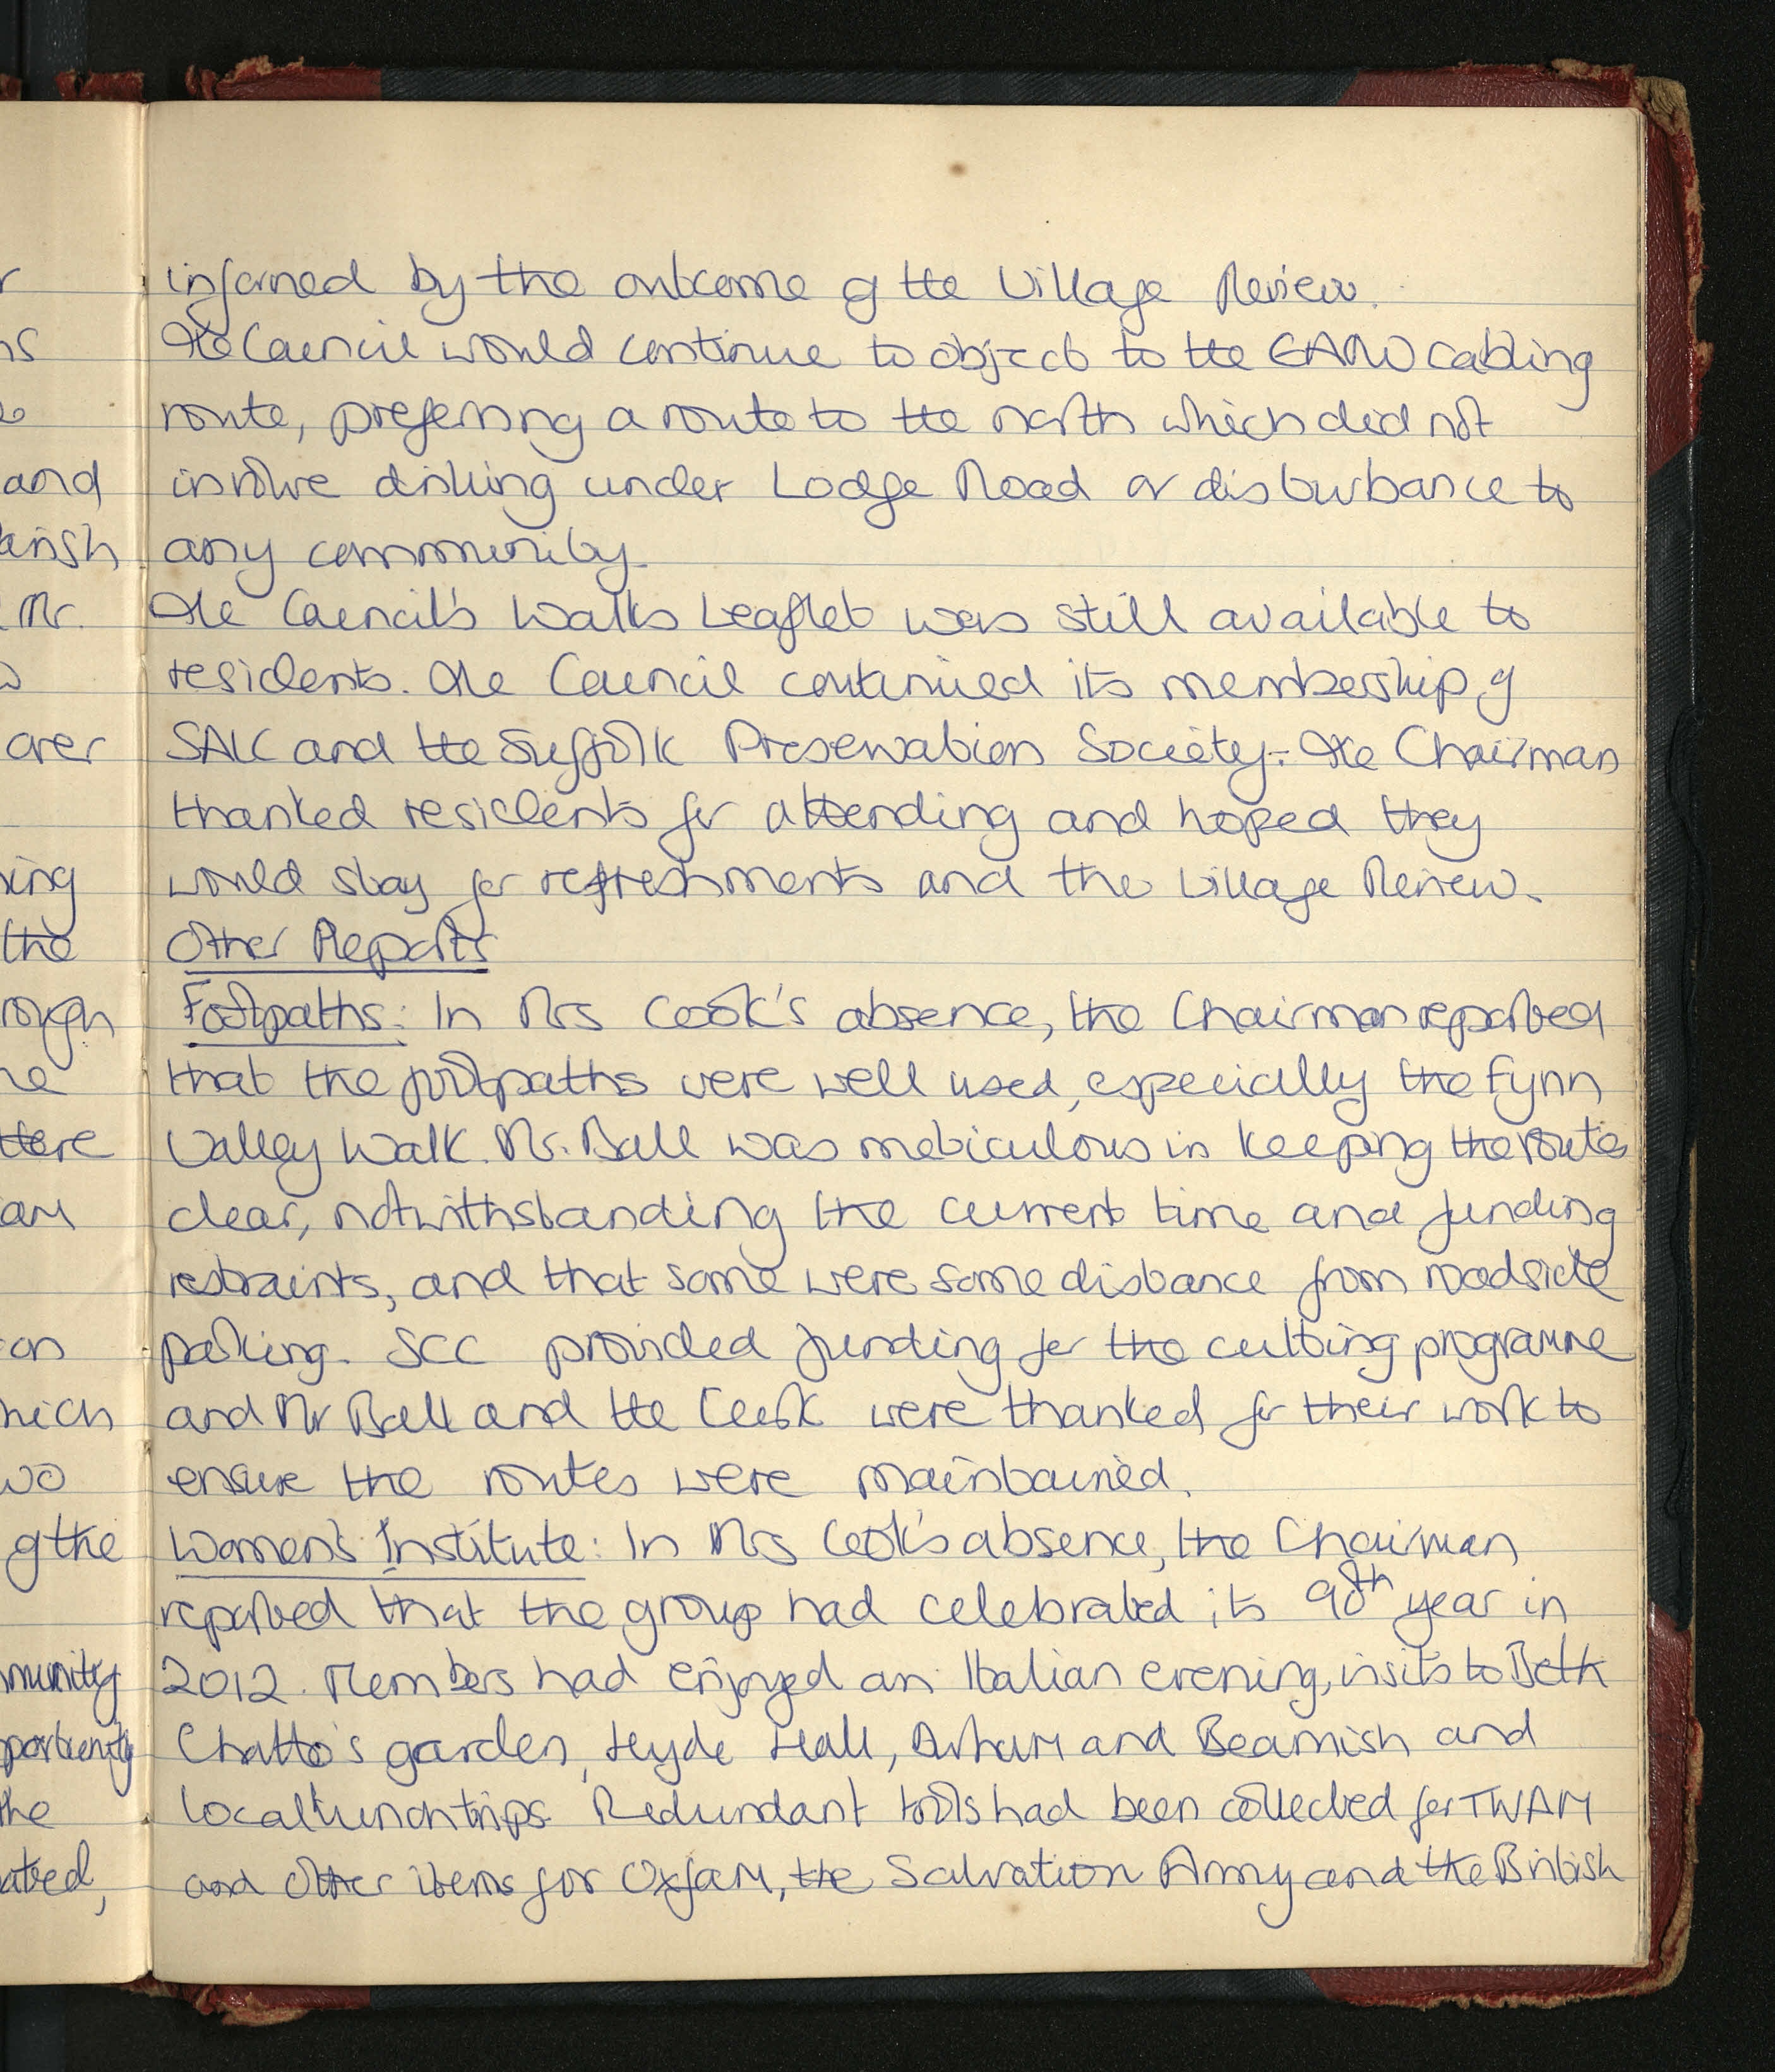 informed by the outcome of the Village Review.
The Council would continue to object to the EAOW cabling
route, preferring a route to the north which did not
involve drilling under Lodge Road or disturbance to
any community.
The Council's Walks Leaflet was still available to
residents. The Council continued its membership of
SALC and the Suffolk Preservation Society. The Chairman
thanked residents for attending and hoped they
would stay for refreshments and the Village Review.
Other Reports
Footpaths: In Mrs Cook's absence, the Chairman reported
that the footpaths were well used, especially the Fynn
Valley Walk. Mr. Ball was meticulous in keeping the routes
clear, notwithstanding the current time and funding
restraints, and that some were some distance from roadside
parking. SCC provided funding for the cutting programme
and Mr Ball and the Clerk were thanked for their work to
ensure the routes were maintained.
Women's Institute: In Mrs Cook's absence, the Chairman
reported that the group had celebrated its 90th year in
2012. Members had enjoyed an Italian evening, visits to Beth
Chatto's garden, Hyde Hall, Durham and Beamish and
local lunch trips. Redundant tools had been collected for TWAM
and other items for Oxfam, the Salvation Army and the British